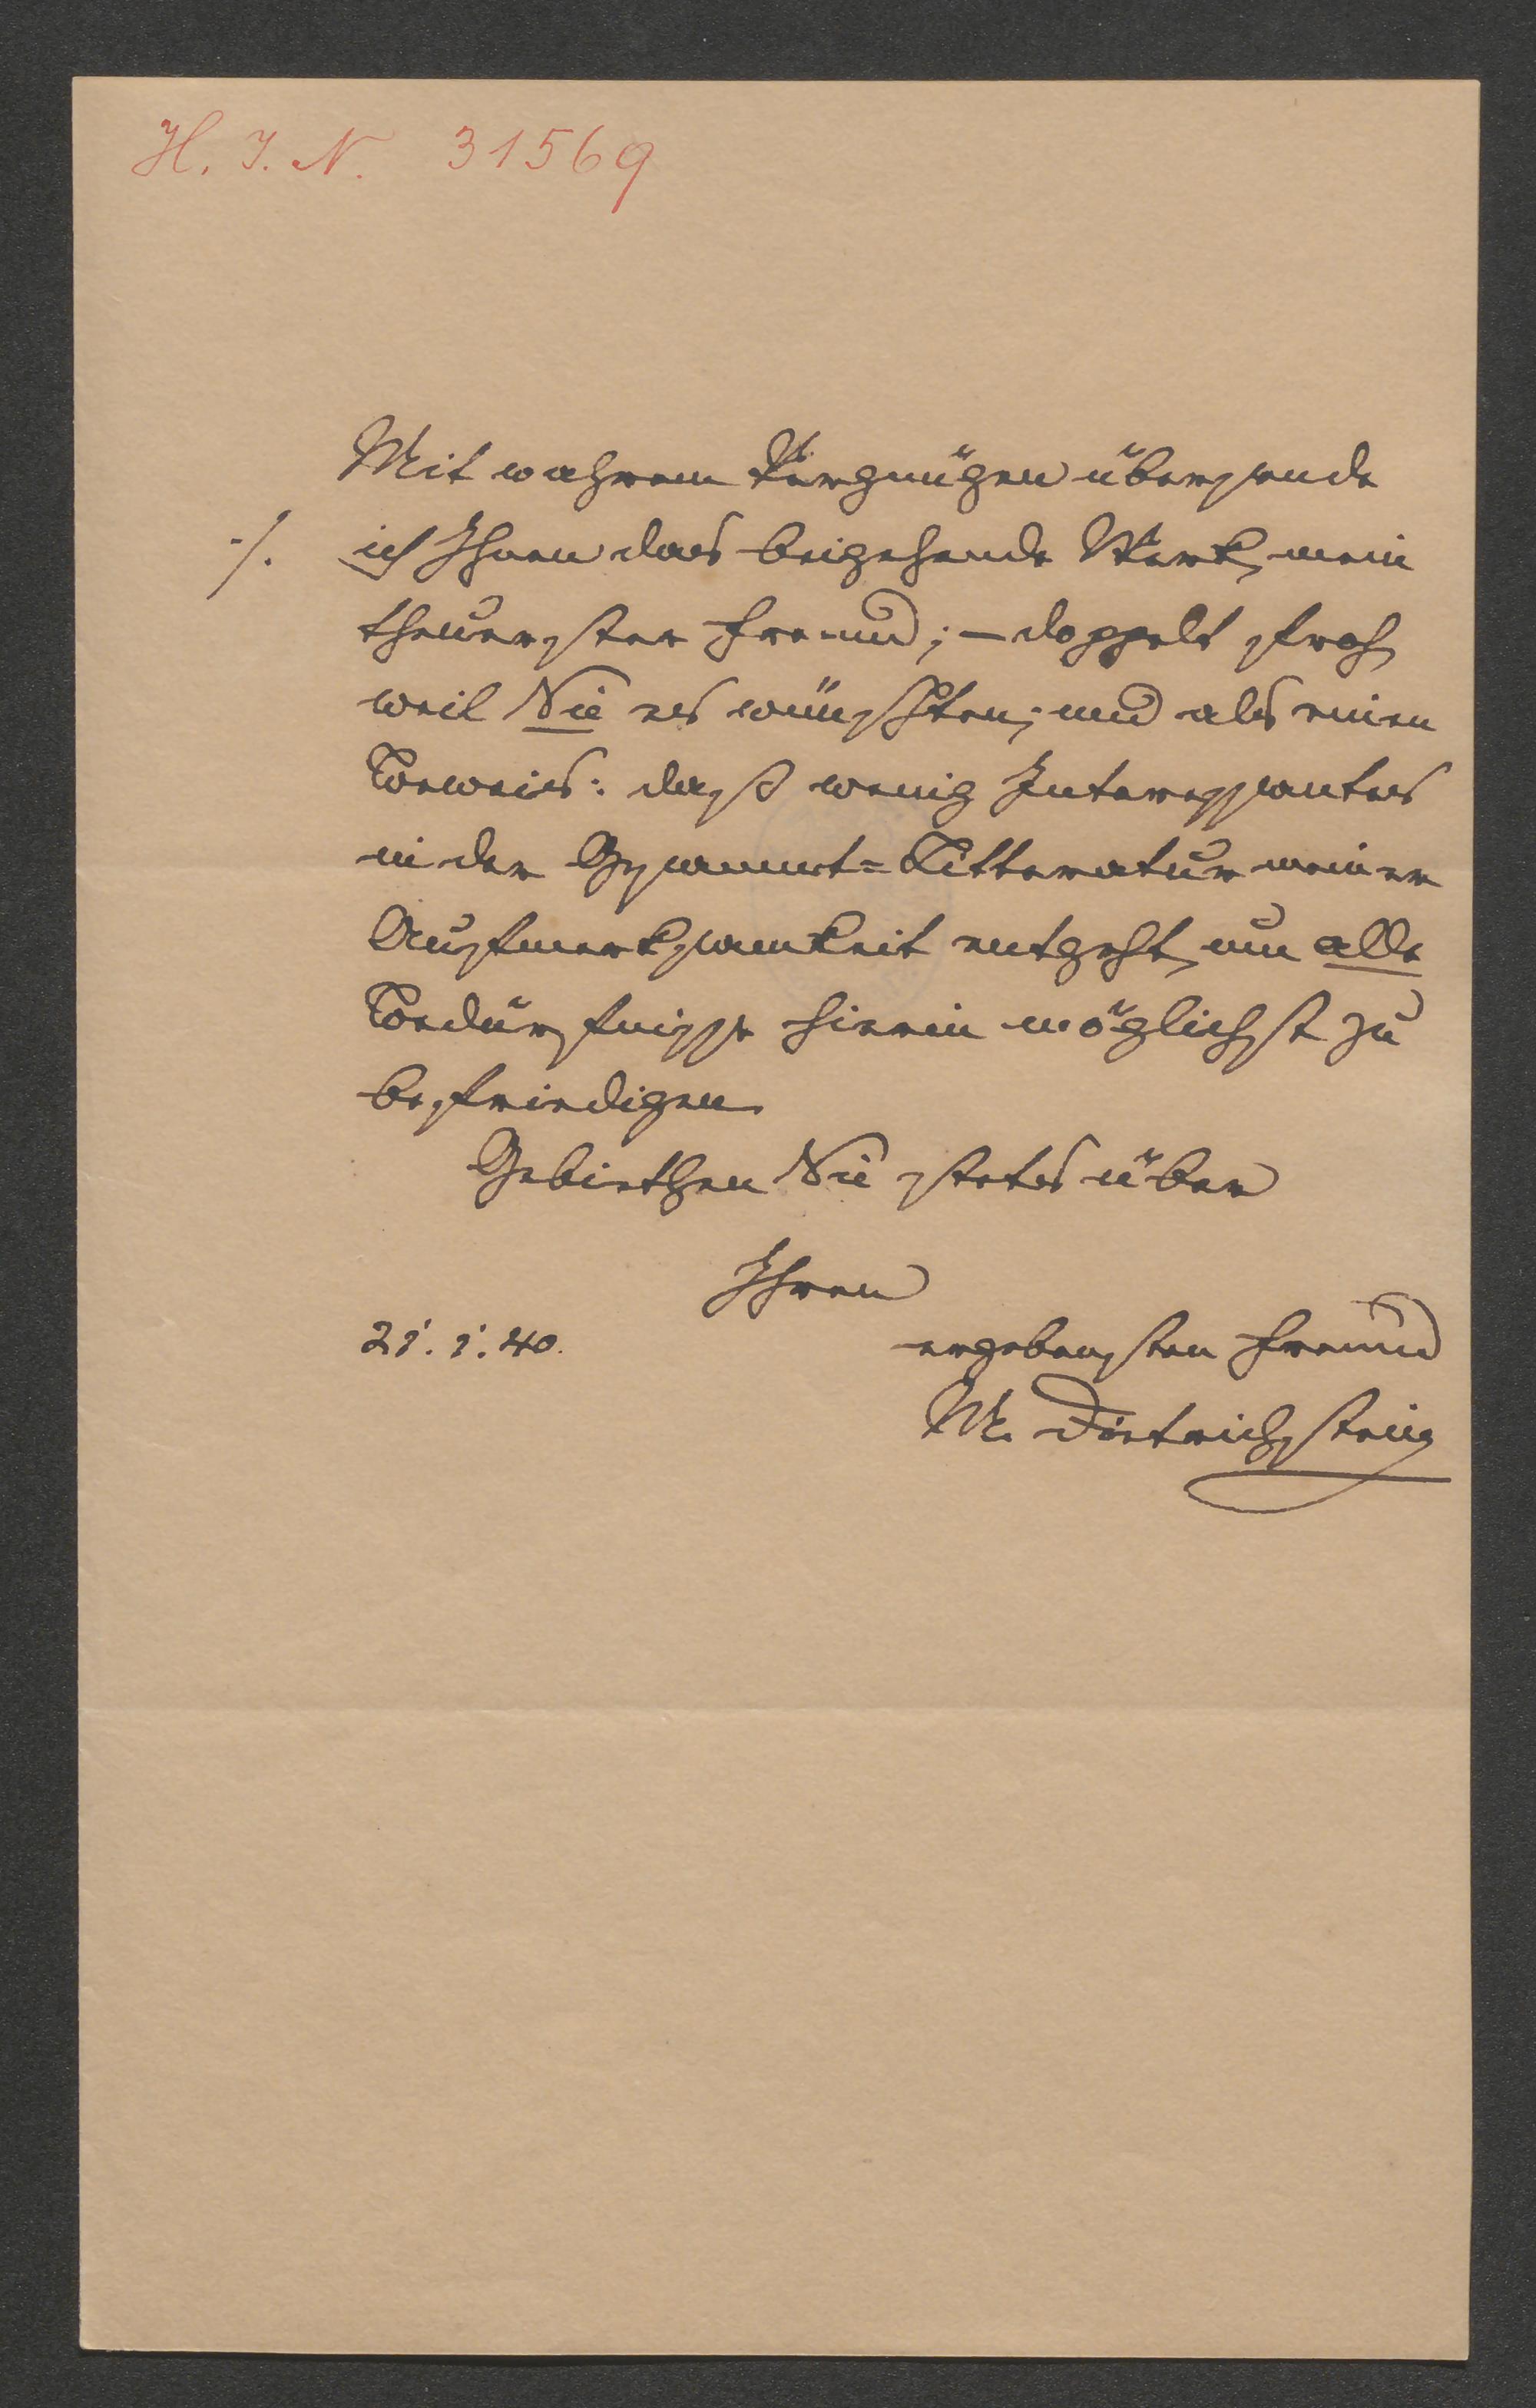 H. I. N. 31569
Mit wahrem Vergnügen übersende
./. ich Ihnen das beigehende Werk, mein
theuerster Freund; – doppelt froh,
weil Sie es wünschten; und als einen
Beweis: daß wenig Interessantes
in der Gesammt-Litteratur meiner
Aufmerksamkeit entgeht, um alle
Bedürfnisse hierin möglichst zu
befriedigen.
Gebiethen Sie stets über
Ihren
21. 1. 40. ergebensten Freund
M. Dietrichstein